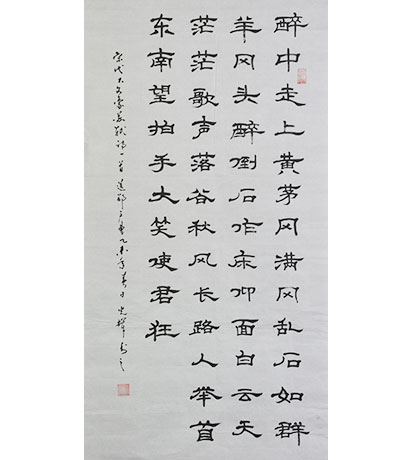 醉中走上黄茅冈满冈乱石如群
羊冈头醉倒石作床仰面白云天
茫茫歌声落谷秋风长路人举首
东南望拍手大笑使君狂
宋代大文豪苏轼诗一首 乙未年春月光辉书之